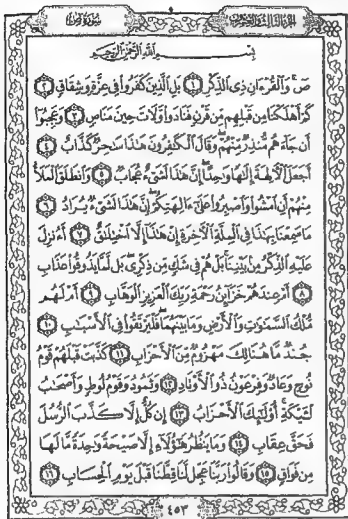 الجزء الثالث والعشرون
سورة ص
بِسْمِ اللَّهِ الرَّحْمَٰنِ الرَّحِيمِ
صٓ وَالْقُرْءَانِ ذِي الذِّكْرِ ١ بَلِ الَّذِينَ كَفَرُوا فِي عِزَّةٍ وَشِقَاقٍ ٢
كَمْ أَهْلَكْنَا مِن قَبْلِهِم مِّن قَرْنٍ فَنَادَوا وَّلَاتَ حِينَ مَنَاصٍ ٣ وَعَجِبُوا
أَن جَاءَهُم مُّنذِرٌ مِّنْهُمْ وَقَالَ الْكَٰفِرُونَ هَٰذَا سَٰحِرٌ كَذَّابٌ ٤
أَجَعَلَ الْءَالِهَةَ إِلَٰهًا وَٰحِدًا إِنَّ هَٰذَا لَشَيْءٌ عُجَابٌ ٥ وَانطَلَقَ الْمَلَأُ
مِنْهُمْ أَنِ امْشُوا وَاصْبِرُوا عَلَىٰ ءَالِهَتِكُمْ إِنَّ هَٰذَا لَشَيْءٌ يُرَادُ ٦
مَا سَمِعْنَا بِهَٰذَا فِي الْمِلَّةِ الْءَاخِرَةِ إِنْ هَٰذَا إِلَّا اخْتِلَٰقٌ ٧ أَءُنزِلَ
عَلَيْهِ الذِّكْرُ مِن بَيْنِنَا بَلْ هُمْ فِي شَكٍّ مِّن ذِكْرِي بَل لَّمَّا يَذُوقُوا عَذَابِ
٨ أَمْ عِندَهُمْ خَزَائِنُ رَحْمَةِ رَبِّكَ الْعَزِيزِ الْوَهَّابِ ٩ أَمْ لَهُم
مُّلْكُ السَّمَٰوَٰتِ وَالْأَرْضِ وَمَا بَيْنَهُمَا فَلْيَرْتَقُوا فِي الْأَسْبَٰبِ ١٠
جُندٌ مَّا هُنَالِكَ مَهْزُومٌ مِّنَ الْأَحْزَابِ ١١ كَذَّبَتْ قَبْلَهُمْ قَوْمُ
نُوحٍ وَعَادٌ وَفِرْعَوْنُ ذُو الْأَوْتَادِ ١٢ وَثَمُودُ وَقَوْمُ لُوطٍ وَأَصْحَٰبُ
لْـَٔيْكَةِ أُولَٰئِكَ الْأَحْزَابُ ١٣ إِن كُلٌّ إِلَّا كَذَّبَ الرُّسُلَ
فَحَقَّ عِقَابِ ١٤ وَمَا يَنظُرُ هَٰؤُلَاءِ إِلَّا صَيْحَةً وَٰحِدَةً مَّا لَهَا
مِن فَوَاقٍ ١٥ وَقَالُوا رَبَّنَا عَجِّل لَّنَا قِطَّنَا قَبْلَ يَوْمِ الْحِسَابِ ١٦
٤٥٣